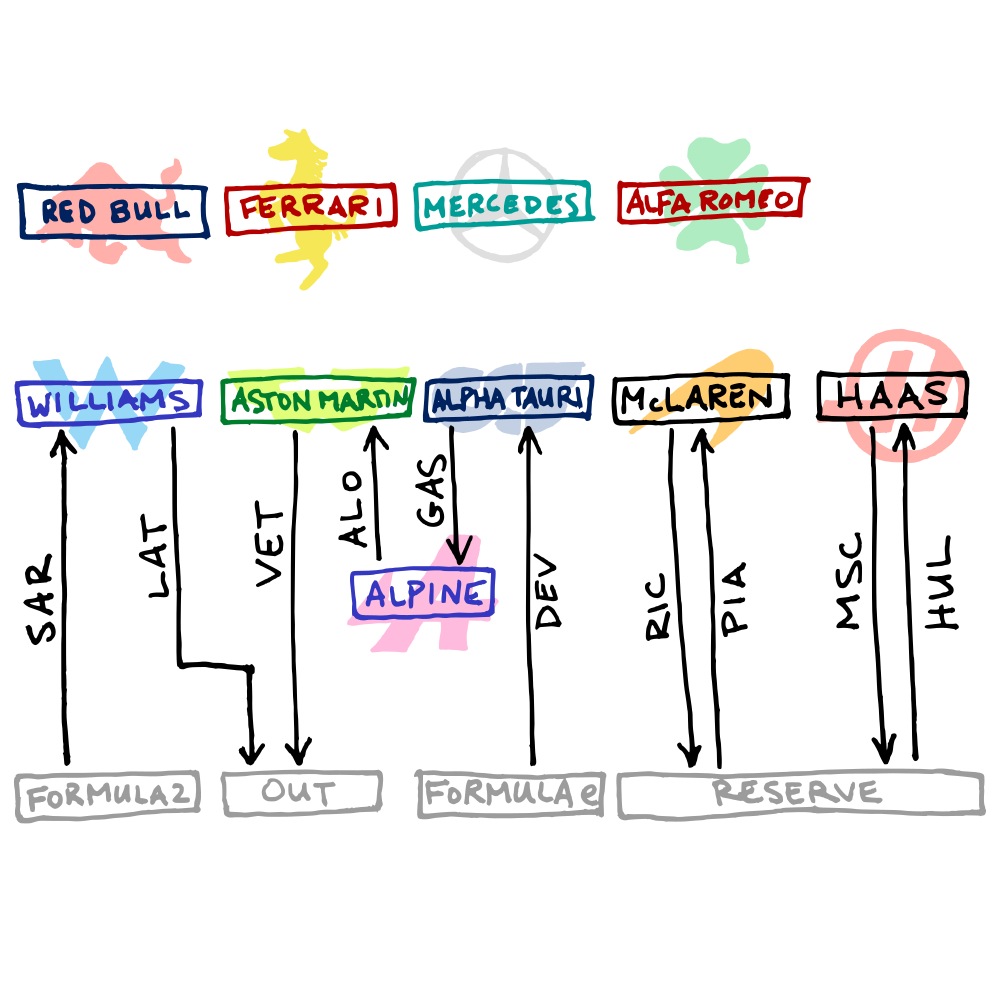 RED BULL
FERRARI
MERCEDES
ALFA ROMEO
WILLIAMS
ASTON MARTIN
ALPHA TAURI
McLAREN
HAAS
SAR
LAT
VET
ALO
GAS
ALPINE
DEV
RIC
PIA
MSC
HUL
FORMULA2
OUT
FORMULA e
RESERVE